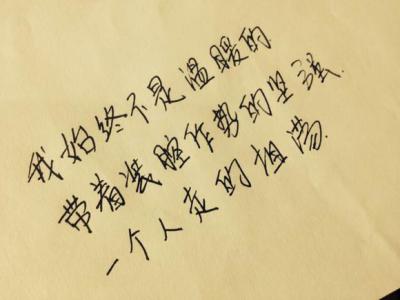 我始终不是溫暖的
带着装腔作势的坚强
一个人走的坦荡